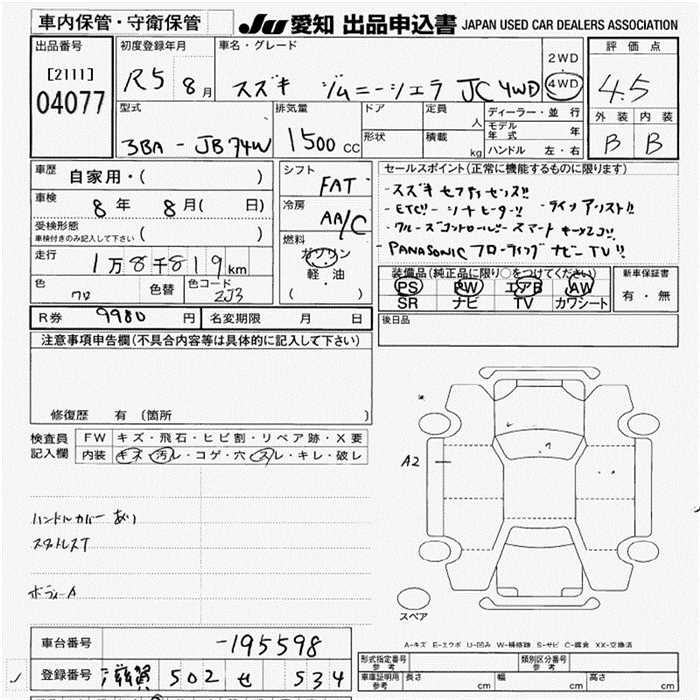 車内保管・守衛保管
JU 愛知 出品申込書 JAPAN USED CAR DEALERS ASSOCIATION
出品番号
[2111]
04077
初度登録年月
R5 8月
車名・グレード
スズキ ジムニーシエラ JC 4WD
2WD
4WD
評価点
4.5
外装 内装
B B
型式
3BA - JB74W
排気量
1500 CC
ドア
形状
定員
人
積載
kg
ディーラー・並行
モデル年式 年
ハンドル 左・右
車歴
自家用・( )
車検
8年 8月( 日)
受検形態
車検付きのみ記入して下さい ( )
走行
1万8千819km
色
色替
色コード
2J3
シフト
FAT
冷房
AA/C
燃料
ガソリン
軽・油
( )
セールスポイント(正常に機能するものに限ります)
・スズキ セフティセンス!!
・ETC!! ・シートヒーター!!
・クルーズコントロール!! ・スマートキー2コ!!
・PANASONIC フローティング ナビーTV!!
装備品(純正品に限り○をつけてください)
PS PW エアB AW
SR ナビ TV カワシート
新車保証書
有・無
R券 9980 円
名変期限 月 日
後日品
注意事項申告欄(不具合内容等は具体的に記入して下さい)
修復歴 有(箇所 )
検査員記入欄
FW キズ・飛石・ヒビ割・リペア跡・X要
内装 キズ・汚レ・コゲ・穴・スレ・キレ・破レ
ハンドルカバー あり
スタットレスT
ボディーA
A2
スペア
A-キズ E-エクボ U-凹み W-補修跡 S-サビ C-腐食 XX-交換済
車台番号 -195598
登録番号 滋賀 502 せ 534
形式指定番号 参考
類別区分番号 参考
車庫証明用 参考 長さ cm 幅 cm 高さ cm